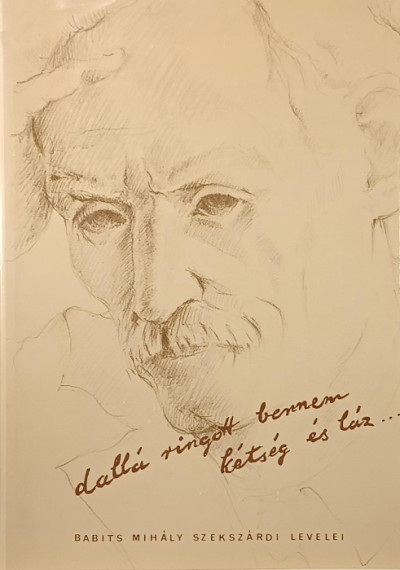 dallá ringott bennem
kétség és láz...
BABITS MIHÁLY SZEKSZÁRDI LEVELEI